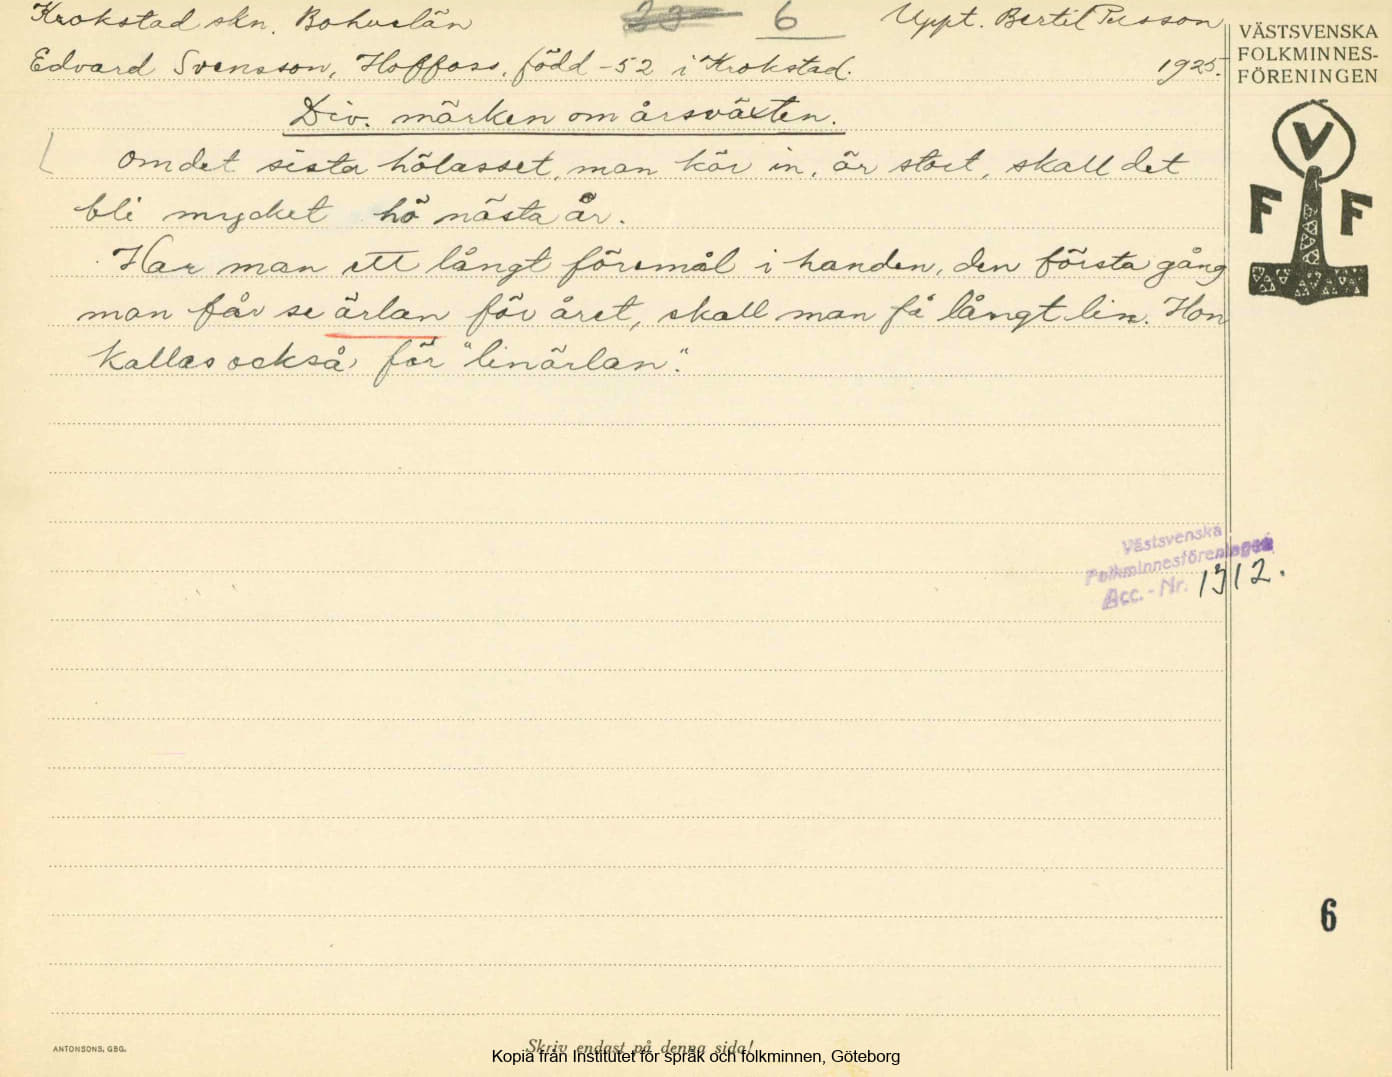 Krokstad skn. Bohuslän
6
Uppt. Bertil Persson
Edvard Svensson, Hoffoss, född -52 i Krokstad.
1925.
VÄSTSVENSKA
FOLKMINNES-
FÖRENINGEN
Div. märken om årsväxten.
V
F F
Om det sista hölasset, man kör in, är stort, skall det
bli mycket hö nästa år.
Har man ett långt föremål i handen, den första gång
man får se ärlan för året, skall man få långt lin. Hon
kallas också för "linärlan".
Västsvenska
Folkminnesföreningen
Acc.-Nr. 1312.
6
ANTONSONS, GBG.
Skriv endast på denna sida!
Kopia från Institutet för språk och folkminnen, Göteborg